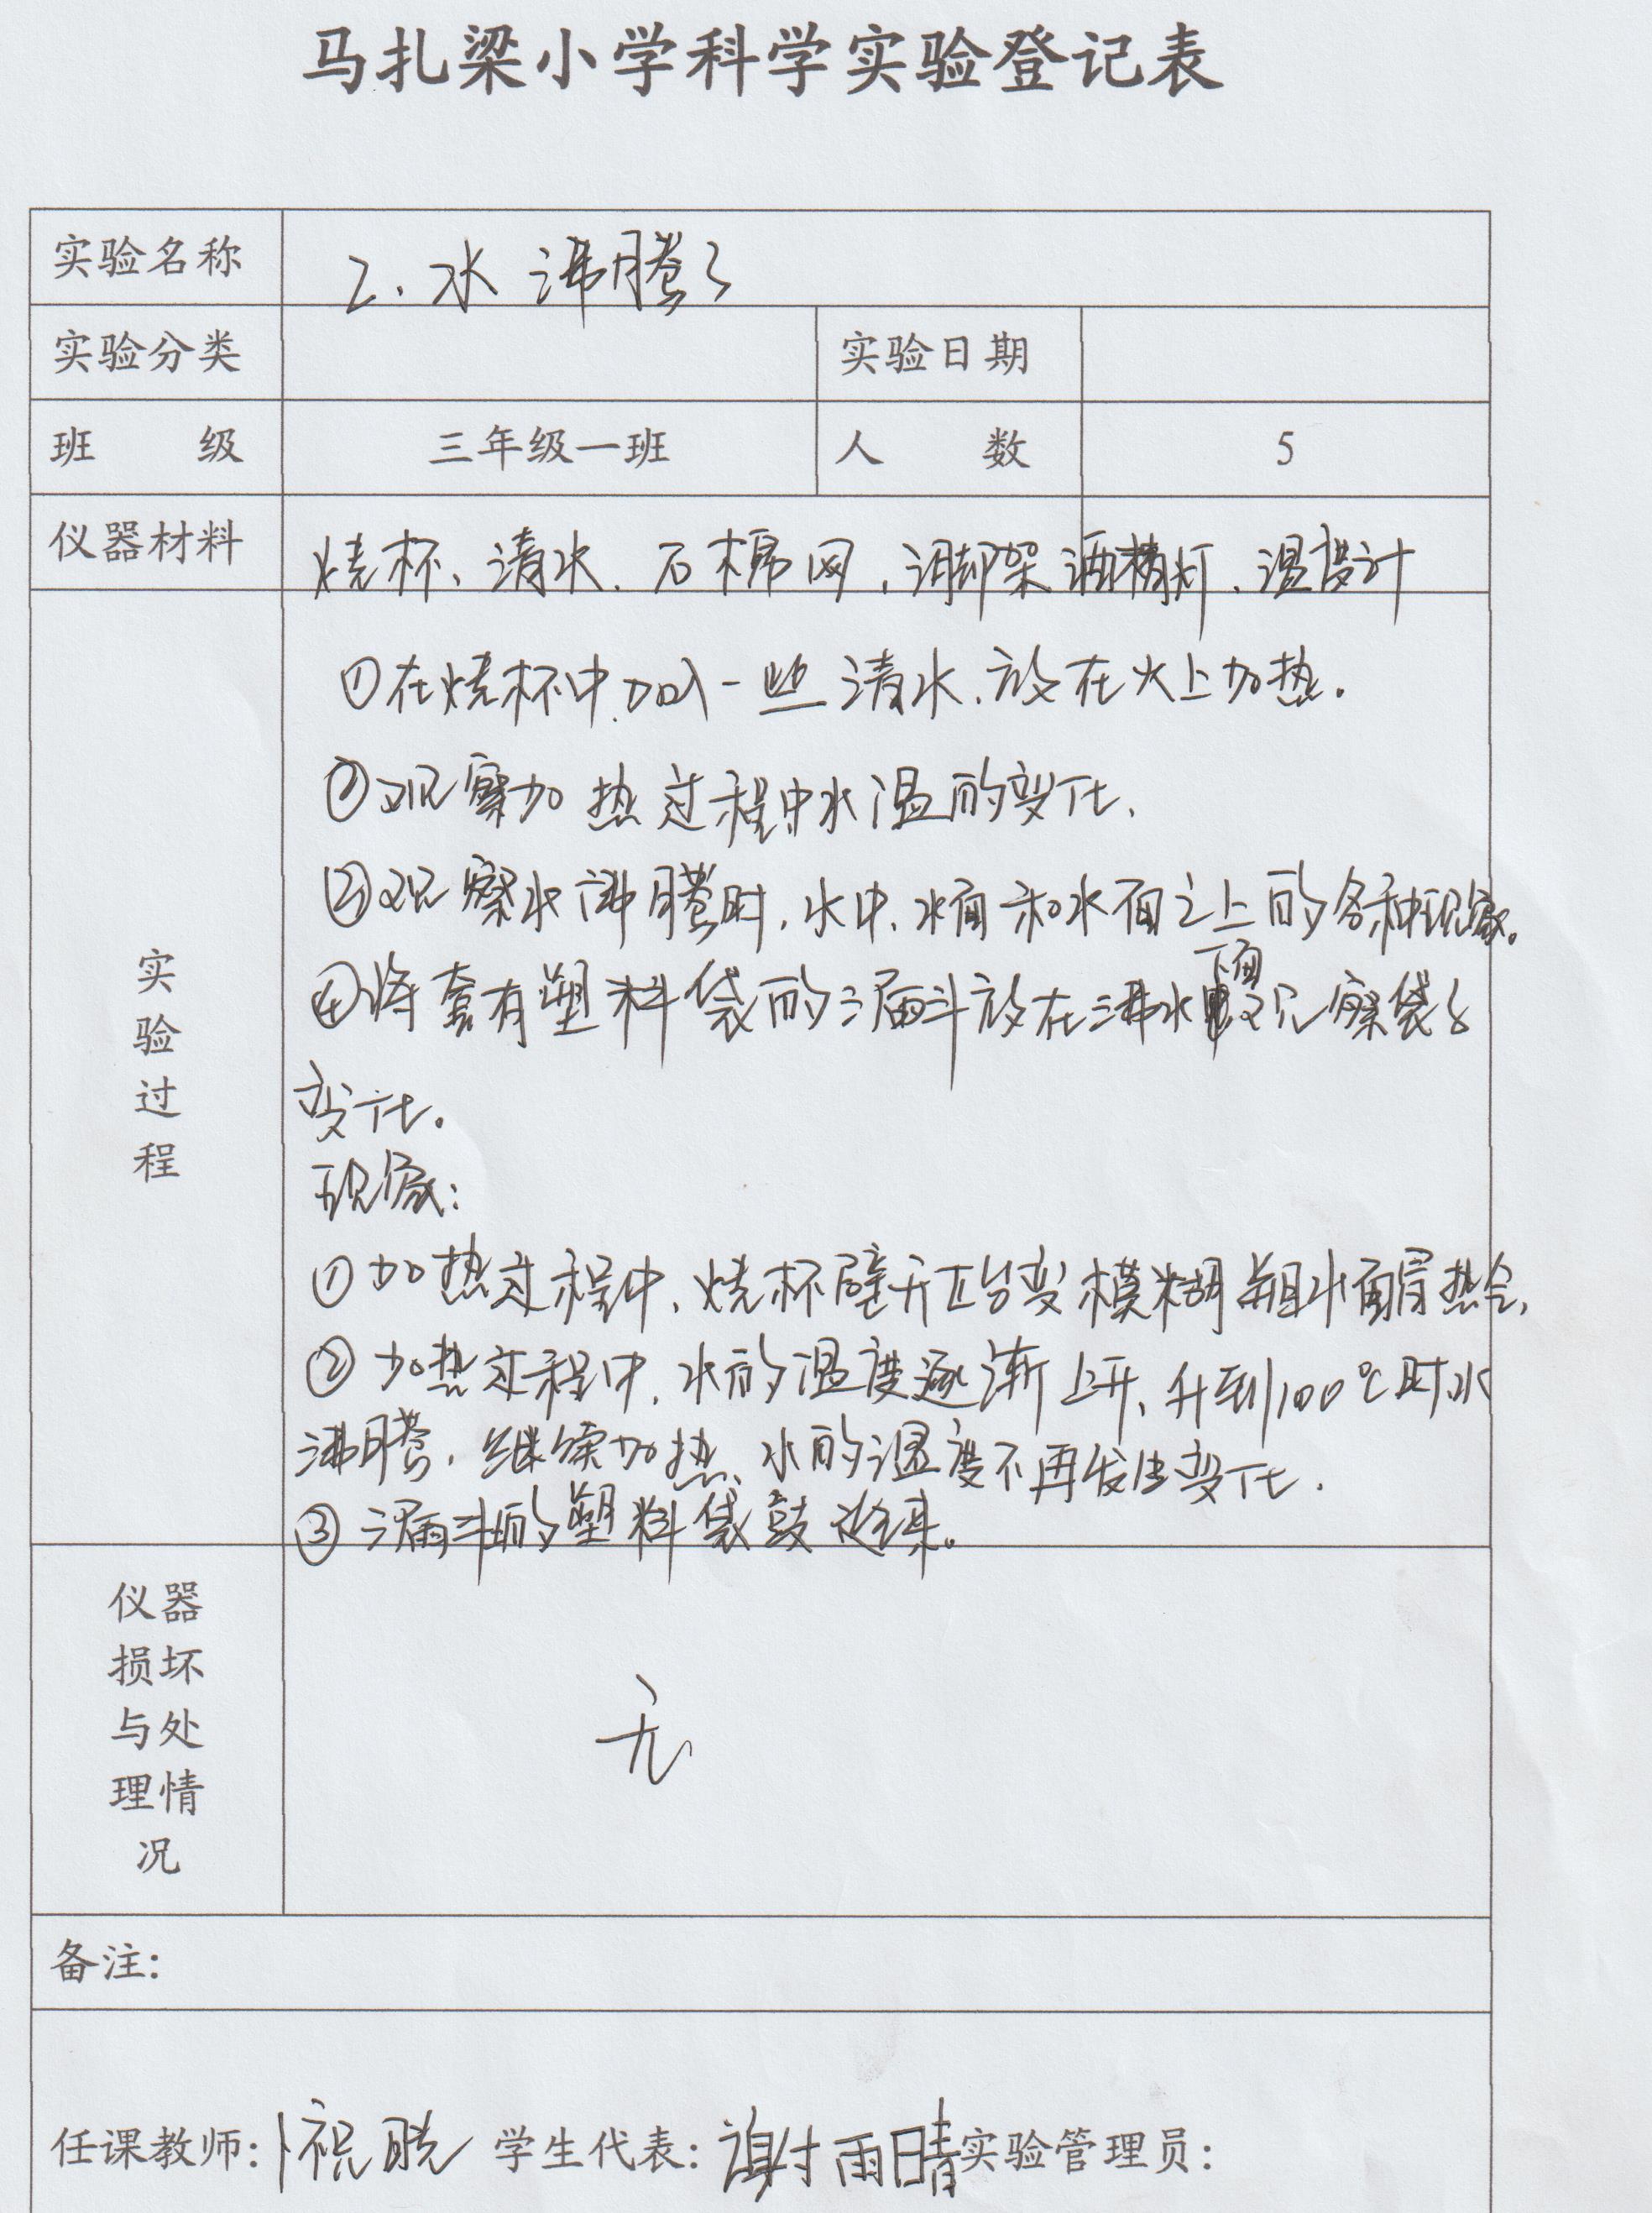 马扎梁小学科学实验登记表
实验名称 2、水沸腾了
实验分类 实验日期
班 级 三年级一班 人 数 5
仪器材料 烧杯、清水、石棉网、 架 酒精灯、温度计
实验过程
①在烧杯中加入一些清水、放在火上加热。
②观察加热过程中水温的变化、
③观察水沸腾时,水中、水面和水面之上的各种现象。
④将套有塑料袋的漏斗放在沸水下面观察袋子
变化。
现象:
①加热过程中、烧杯壁开始变模糊 水面冒热气、
②加热过程中、水的温度逐渐上升、升到100℃时水
沸腾,继续加热、水的温度不再发生变化.
③漏斗的塑料袋鼓起来。
仪器
损坏
与处
理情
况
无
备注:
任课教师:卜祝 学生代表:谢雨晴 实验管理员: